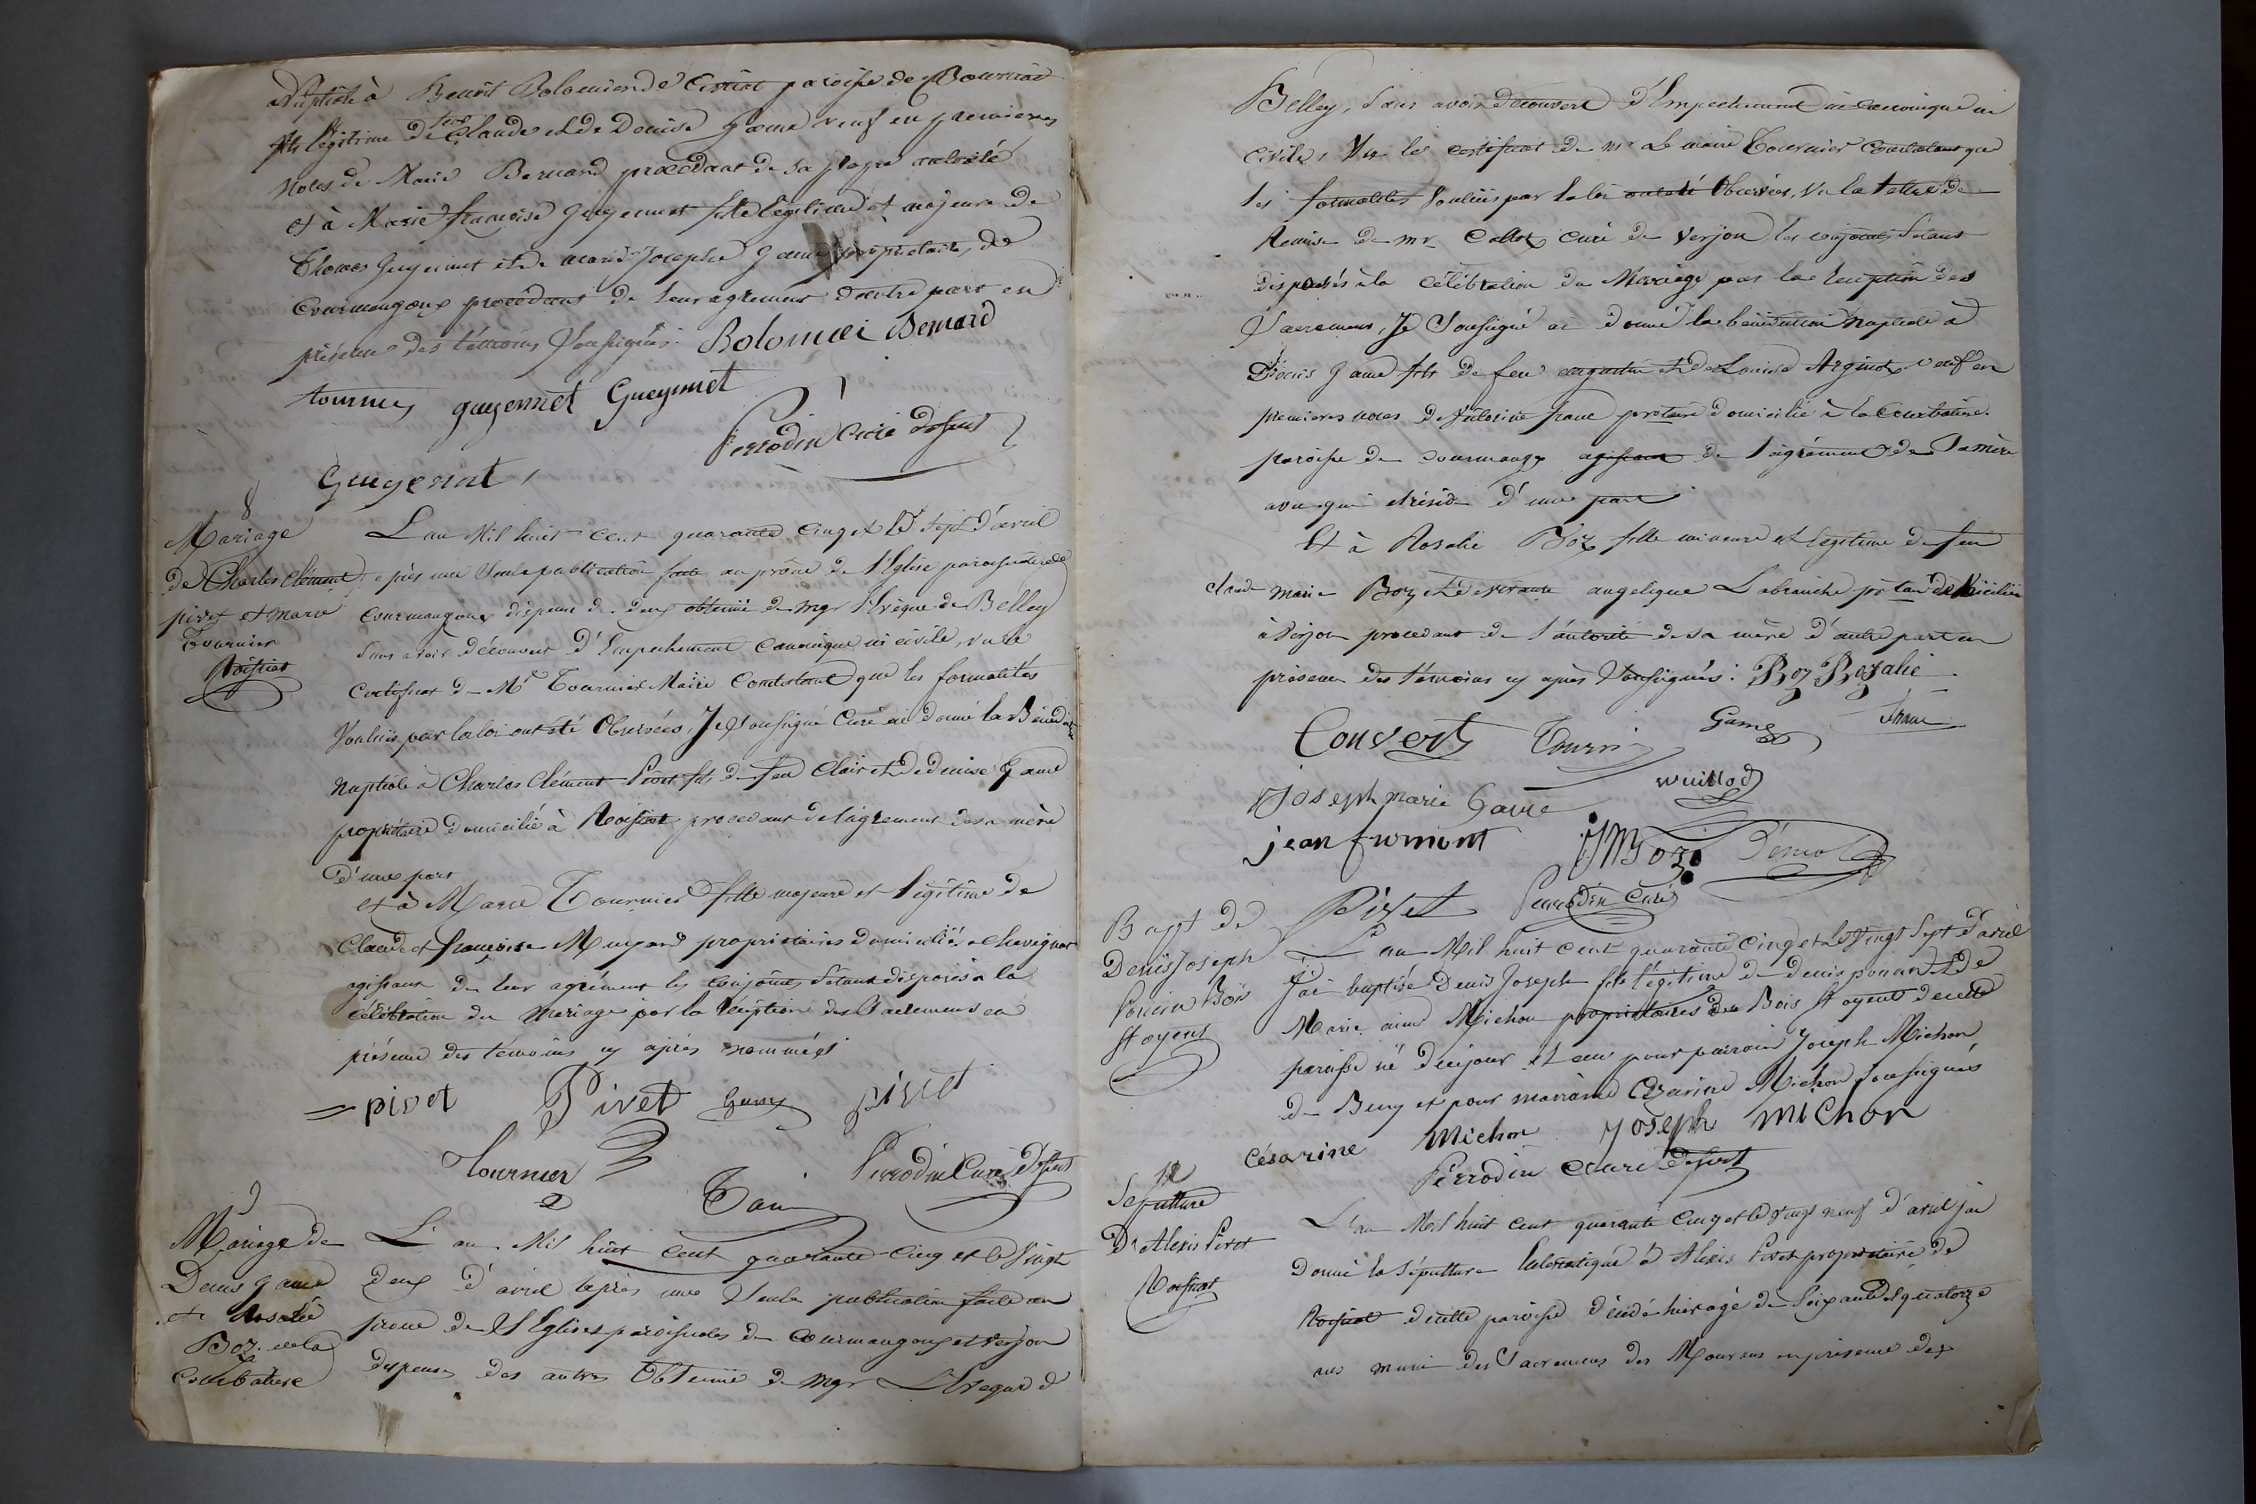 Nuptiale à Benoît Bolomier de Cesciat paroisse de
fils légitime de feu Claude et de Denise Game veuf en premieres
noces de Marie Bernard procédant de sa propre autorité
et à Marie françoise Guyennet fille légitime et majeure de
Thomas Guyennet et de marie Josephe Game propriétaires de
Courmangoux procédant de leur agrément d'autre part en
présence des témoins soussignés. Bolomié Bernard
tournier guyennet Gueynnet
Perrodin Curé desset
Guygenot
8
Mariage
de Charles Clément
pivet et marie
Tournier
Roissiat
L'an Mil huit cent quarante cinq et le sept d'avril
après une seule publication faite au prône de l'Eglise paroissiale de
Courmangoux dispense de deux obtenue de mgr l'Evêque de Belley
sans avoir découvert d'Empechement Canonique ni civile, vu le
Certificat de Mr Tournier Maire Constatant que les formalités
Voulues par la loi ont été Observées, Je soussigné Curé ai donné la Bénédiction
Nuptiale à Charles Clément Pivet fils de feu Clair et de denise Game
propriétaire domicilié à Roissiat procedant de l'agrement de sa mère
d'une part
et à Marie Tournier fille majeure et légitime de
Claude et françoise propriétaires domiciliés a chevignat
agissant de leur agrément les conjoints s'étant disposés à la
célébration du Mariage par la réception des Sacrements en
présence des témoins cy après nommés
pivet Pivet Game pivet
Tournier Perrodin Curé
9
Mariage de
Denis Game
et Rosalie
Boz de la
Courbatiere
L'an Mil huit cent quarante cinq et le Vingt
deux d'avril après une seule publication faite au
prone de l'Eglises paroissiales de Courmangoux et verjon
dispense des autres Obtenue de mgr L'Evequé d
Belley, sans avoir découvert d'Empechement ni canonique ni
civile, Vu les certificat de mr Le maire Tournier Constatant que
les formalités Voulues par la loi ont été Observées, Vu la lettre de
Remise de mr Collet curé de Verjon les conjoints s'étant
disposés à la célébration du Mariage par la reception des
Sacremens, Je Soussigné ai donné la bénédiction Nuptiale à
Denis Game fils de feu augustin et de Louise veuf en
premieres noces de franc domicilié à la Courbatière
paroisse de courmangx agissant de l'agrément de sa mère
d'une part
Et à Rosalie Boz fille mineure et légitime de feu
Claude marie Boz et de vivante angelique Labranche domiciliée
à Verjon procedant de l'autorité de sa mère d'autre part en
présence des témoins cy après soussignés : Boz Rosalie
Convert Tourni Game franc
Joseph marie Game wuillod
jean fromont JM Boz
Pivet Perrodin Curé
Bapt de
Denis Joseph
Poncin Bois
St oyent
L'an Mil huit cent quarante cinq et le Vingt Sept d'avril
J'ai baptisé Denis Joseph fils légitime de denis et de
Marie aimé Michon propriétaires du Bois St oyent de cette
paroisse né de ce jour Il a eu pour parrain Joseph Michon
de Beny et pour marraine Césarine Michon soussignés
césarine Michon Joseph Michon
Perrodin curé desset
Sepulture
D'Alexis Pivet
Roissiat
L'an Mil huit cent quarante Cinq et le vingt neuf d'avril j'ai
Donné la sépulture Eclésiatique à Alexis Pivet propriétaire de
Roissiat de cette paroisse décédé hier agé de Soixante et quatorze
ans muni des Sacremens des Mourans en présence des